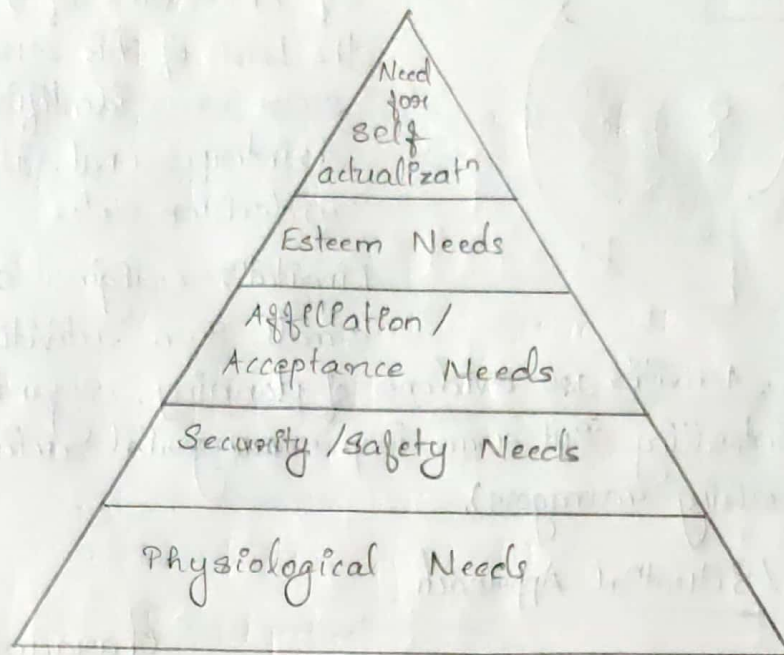 Need
for
self
actualizatn
Esteem Needs
Affiliation /
Acceptance Needs
Security / Safety Needs
Physiological Needs